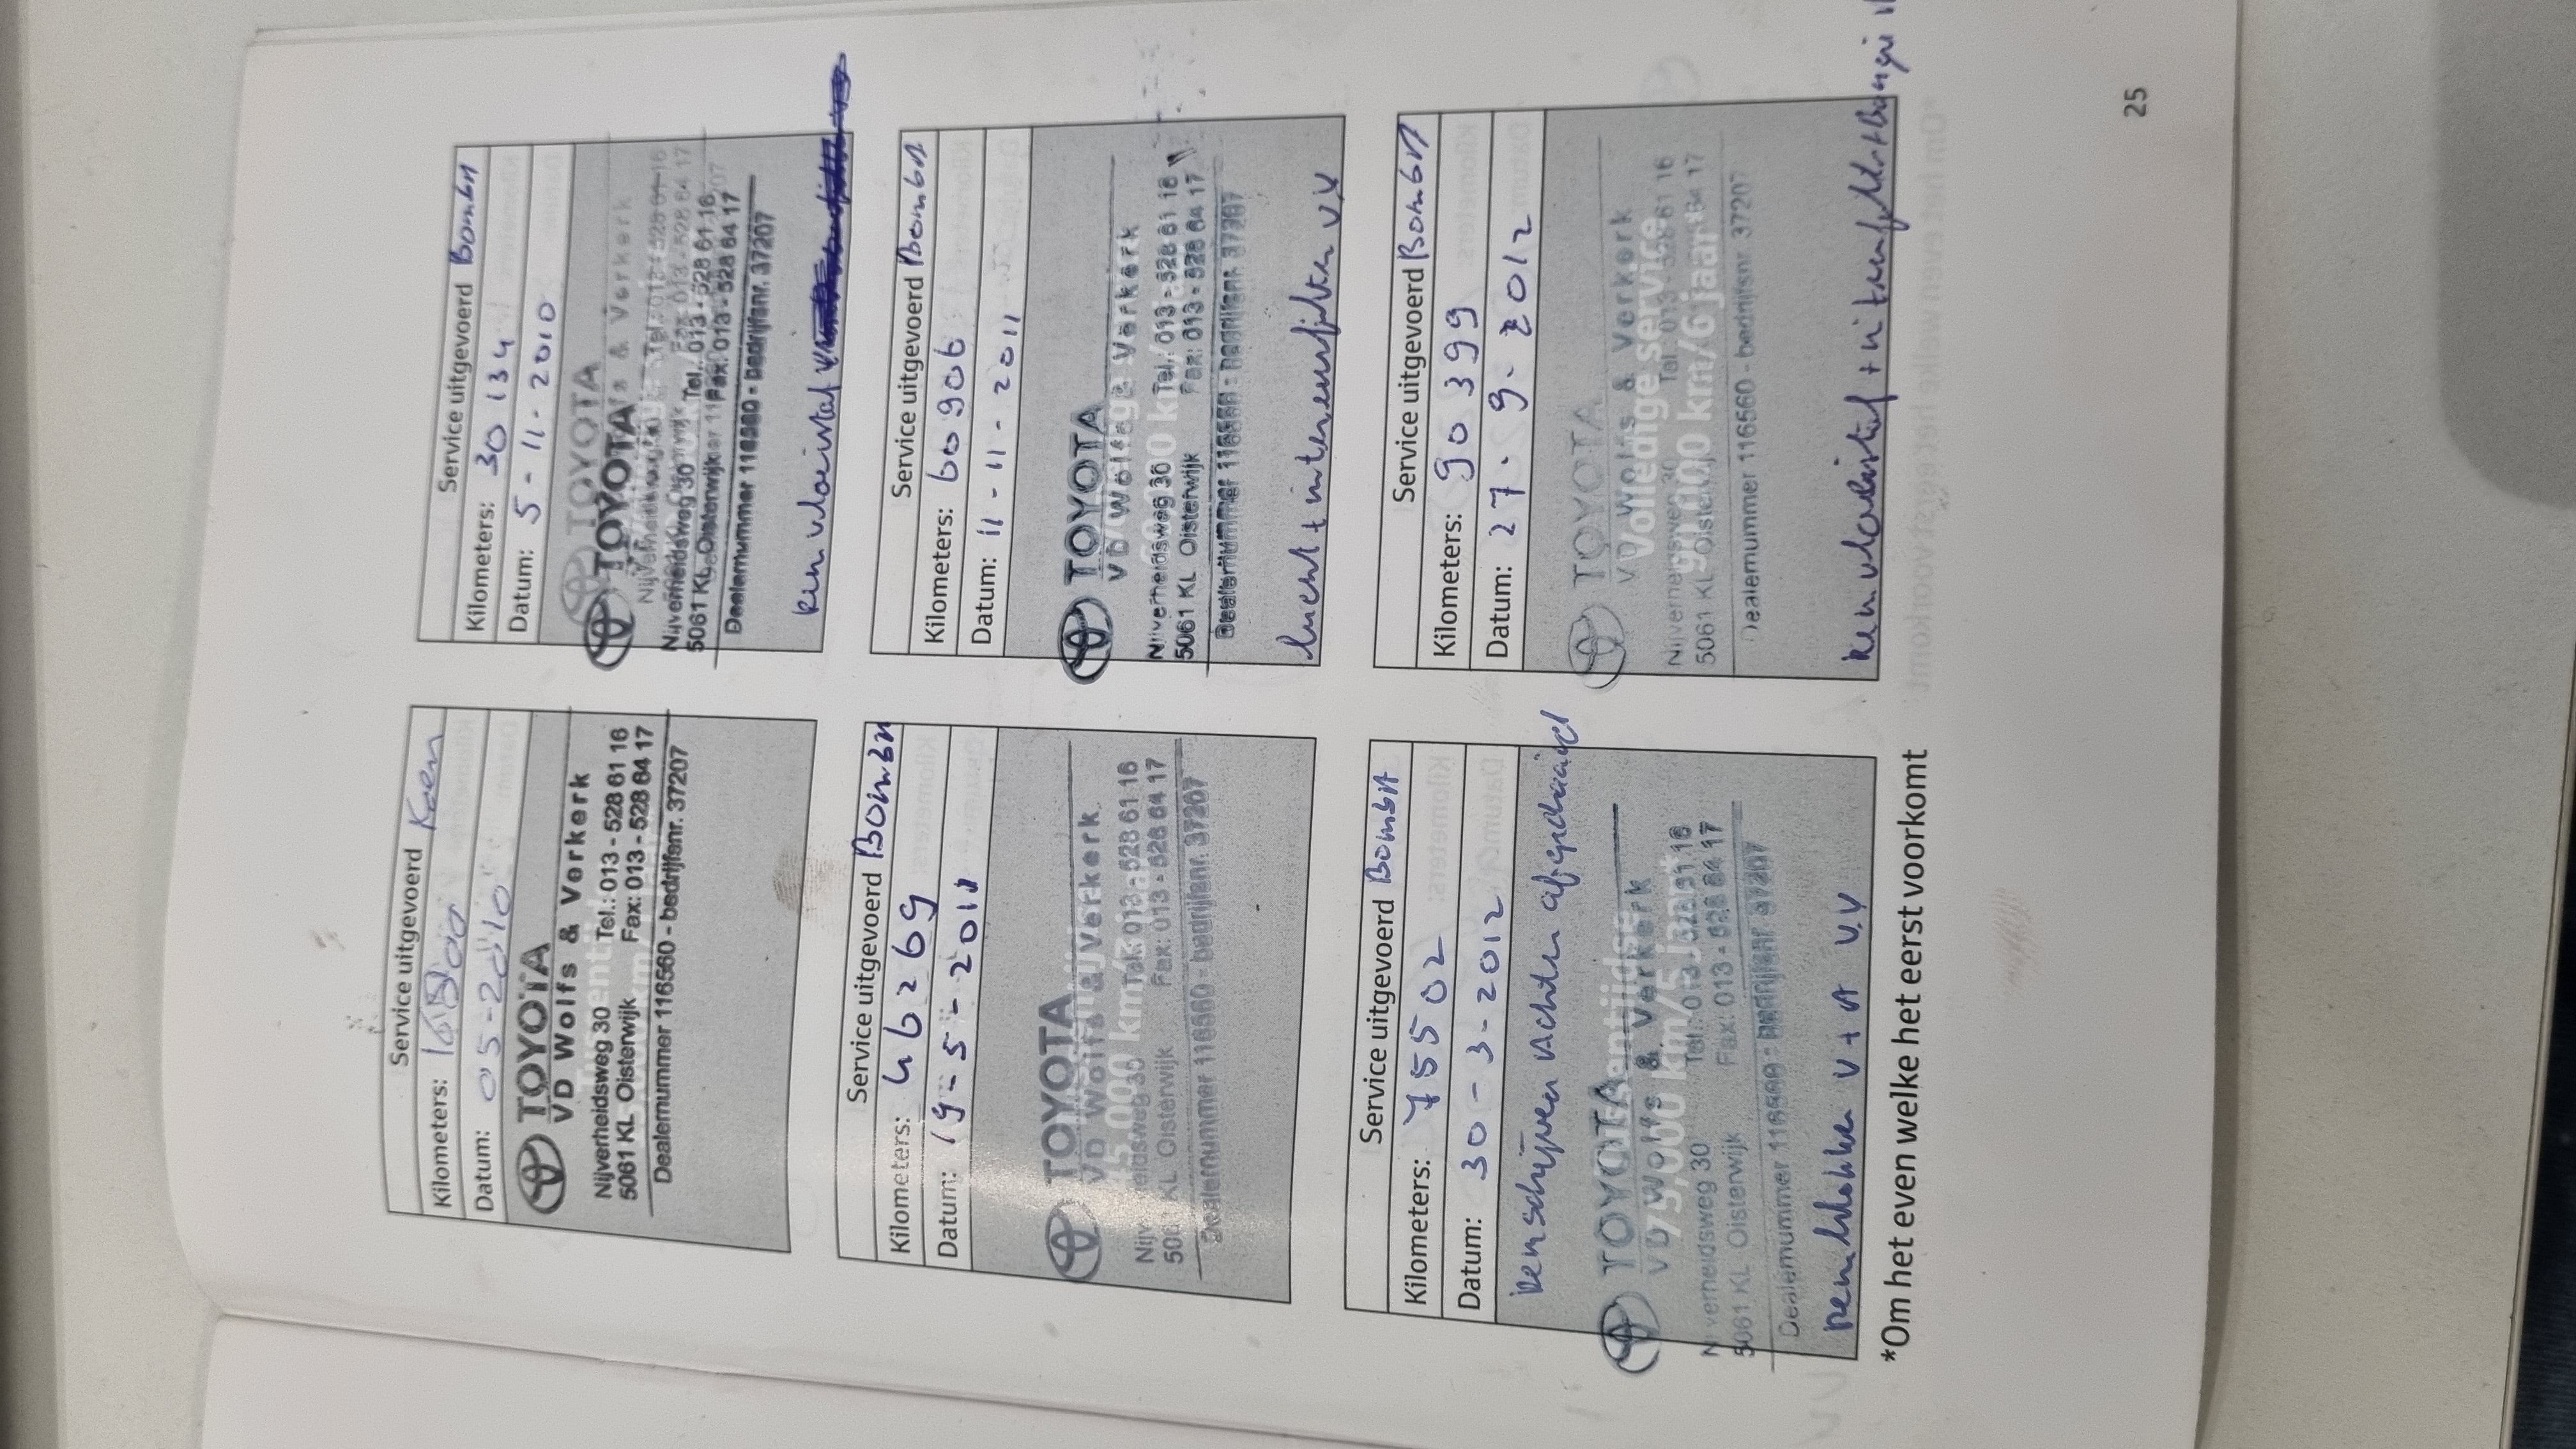 Service uitgevoerd Koen
Kilometers:
Datum: 05-2010
TOYOTA
VD Wolfs & Verkerk
Nijverheidsweg 30 Tel.: 013 - 528 61 16
5061 KL Oisterwijk Fax: 013 - 528 64 17
Dealernummer 116560 - bedrijfsnr. 37207
Service uitgevoerd
Kilometers: 30 134
Datum: 5 - 11 - 2010
TOYOTA
TOYOTA
& Verkerk
Nijverheidsweg 30 Tel.: 013 - 528 61 16
5061 KL Oisterwijk Fax: 013 - 528 64 17
Dealernummer 116560 - bedrijfsnr. 37207
remvloeistof
Service uitgevoerd
Kilometers: 46269
Datum: 19-5-2011
TOYOTA
VD Wolfs & Verkerk
45.000 km/
Nijverheidsweg 30 Tel.: 013 - 528 61 16
5061 KL Oisterwijk Fax: 013 - 528 64 17
Dealernummer 116560 - bedrijfsnr. 37207
Service uitgevoerd
Kilometers: 60906
Datum: 11 - 11 - 2011
TOYOTA
VD Wolfs & Verkerk
Nijverheidsweg 30 Tel.: 013 - 528 61 16
5061 KL Oisterwijk Fax: 013 - 528 64 17
Dealernummer 116560 - bedrijfsnr. 37207
lucht + interieurfilter v.v
Service uitgevoerd
Kilometers: 75502
Datum: 30-3-2012
remschijven achter afgedraaid
TOYOTA
VD Wolfs & Verkerk
75.000 km/5 jaar*
Nijverheidsweg 30 Tel.: 013 - 528 61 16
5061 KL Oisterwijk Fax: 013 - 528 64 17
Dealernummer 116560 - bedrijfsnr. 37207
remblokken v + A v.v
Service uitgevoerd
Kilometers: 90399
Datum: 27. 9. 2012
TOYOTA
VD Wolfs & Verkerk
Volledige service
90.000 km/6 jaar*
Nijverheidsweg 30 Tel.: 013 - 528 61 16
5061 KL Oisterwijk 64 17
Dealernummer 116560 - bedrijfsnr. 37207
remvloeistof +
*Om het even welke het eerst voorkomt
25